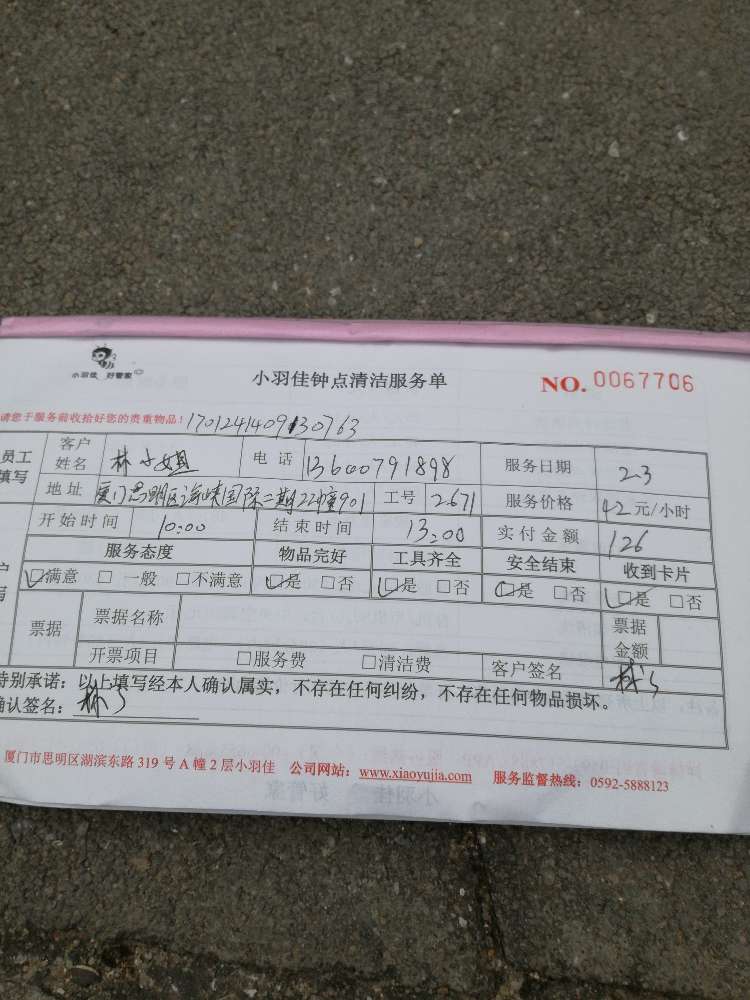 小羽佳 好管家
小羽佳钟点清洁服务单 NO. 0067706
请您于服务前收拾好您的贵重物品! 170124140930763
员工填写 客户姓名 林小姐 电话 13600791898 服务日期 2.3
地址 厦门思明区海峡国际二期22幢901 工号 2671 服务价格 42 元/小时
开始时间 10:00 结束时间 13:00 实付金额 126
服务态度 物品完好 工具齐全 安全结束 收到卡片
☑满意 □一般 □不满意 ☑是 □否 ☑是 □否 ☑是 □否 ☑是 □否
票据 票据名称 票据金额
开票项目 □服务费 □清洁费 客户签名 林
特别承诺:以上填写经本人确认属实,不存在任何纠纷,不存在任何物品损坏。
确认签名: 林
厦门市思明区湖滨东路 319 号 A 幢 2 层小羽佳 公司网站:www.xiaoyujia.com 服务监督热线:0592-5888123